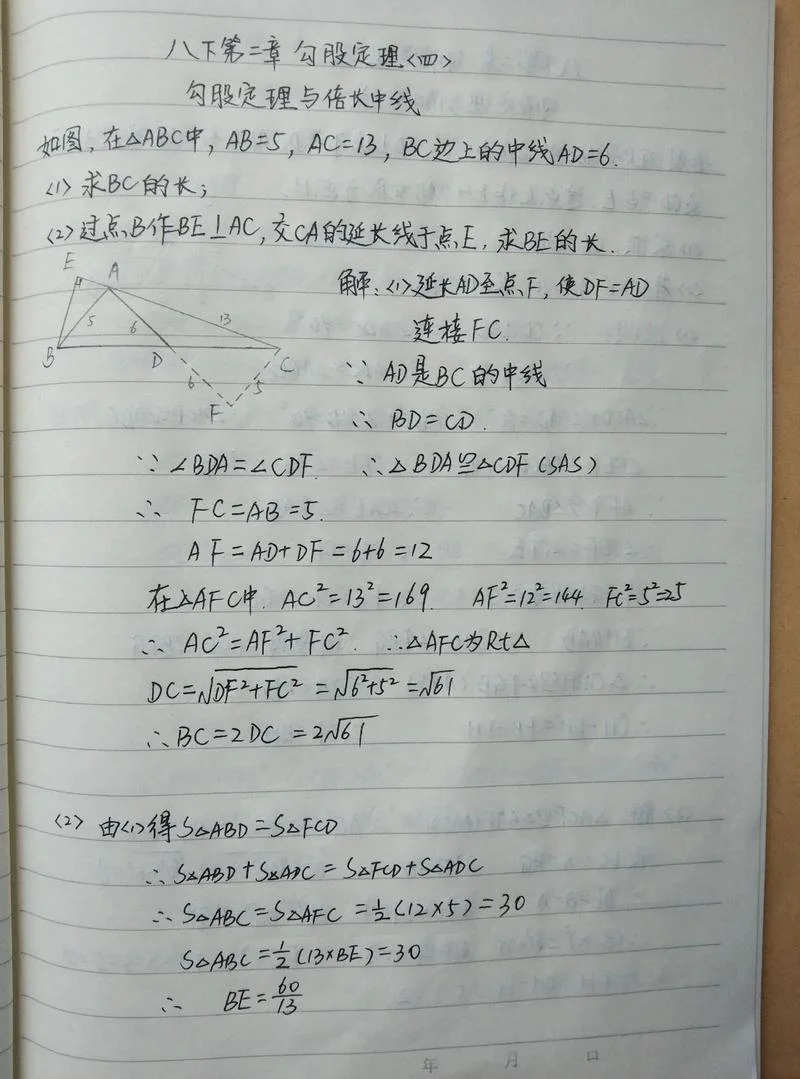 八下第二章 勾股定理<四>
勾股定理与倍长中线
如图,在△ABC中,AB=5,AC=13,BC边上的中线AD=6.
<1> 求BC的长;
<2> 过点B作BE⊥AC,交CA的延长线于点E,求BE的长.
E A
5 6 13
B D C
6 5
F
解:<1>延长AD至点F,使DF=AD
连接FC.
∵ AD是BC的中线
∴ BD=CD.
∵ ∠BDA=∠CDF. ∴△BDA≌△CDF(SAS)
∴ FC=AB=5.
AF=AD+DF=6+6=12
在△AFC中. AC²=13²=169. AF²=12²=144. FC²=5²=25
∴ AC²=AF²+FC². ∴△AFC为Rt△
DC=√(DF²+FC²) =√(6²+5²) =√61
∴BC=2DC =2√61
<2> 由<1>得S△ABD=S△FCD
∴ S△ABD+S△ADC = S△FCD+S△ADC
∴ S△ABC=S△AFC =½(12×5)=30
S△ABC=½(13×BE)=30
∴ BE=60/13
年 月 日